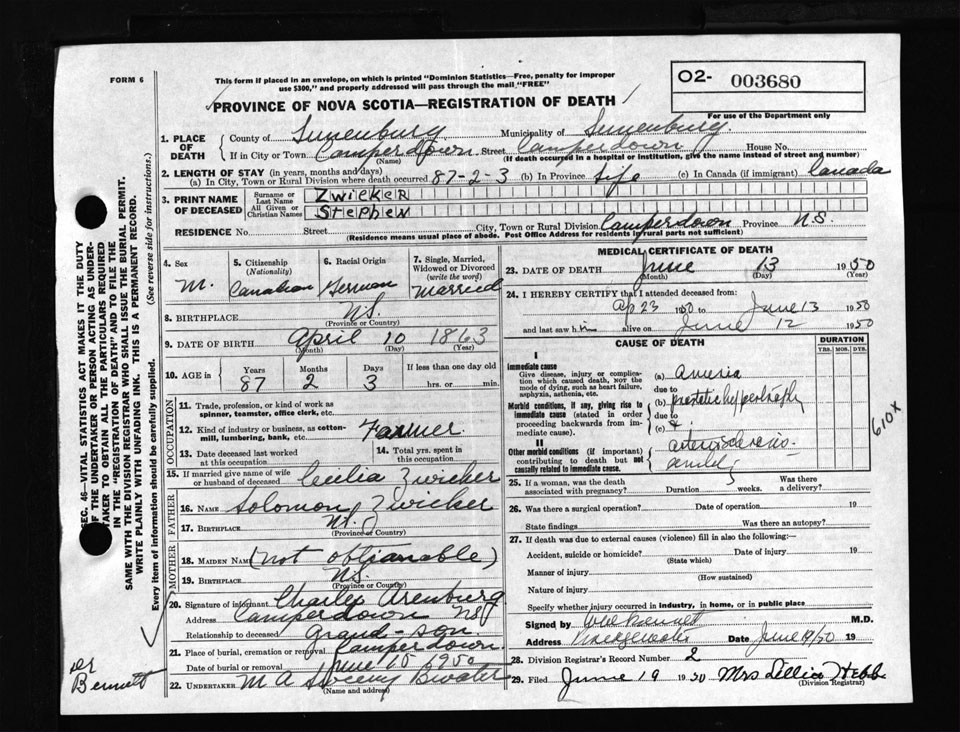 FORM 6
This form if placed in an envelope, on which is printed "Dominion Statistics—Free, penalty for improper
use $300," and properly addressed will pass through the mail "FREE"
O2- 003680
For use of the Department only
PROVINCE OF NOVA SCOTIA—REGISTRATION OF DEATH
1. PLACE OF DEATH County of Lunenburg Municipality of Lunenburg
If in City or Town Camperdown (Name) Street Camperdown House No.
(If death occurred in a hospital or institution, give the name instead of street and number)
2. LENGTH OF STAY (in years, months and days)
(a) In City, Town or Rural Division where death occurred 87-2-3 (b) In Province Life (c) In Canada (if immigrant) Canada
3. PRINT NAME OF DECEASED Surname or Last Name Zwicker
All Given or Christian Names Stephen
RESIDENCE No. Street City, Town or Rural Division Camperdown Province N.S.
(Residence means usual place of abode. Post Office Address for residents in rural parts not sufficient)
4. Sex M.
5. Citizenship (Nationality) Canadian
6. Racial Origin German
7. Single, Married, Widowed or Divorced (write the word) Married
8. BIRTHPLACE N.S. (Province or Country)
9. DATE OF BIRTH April (Month) 10 (Day) 1863 (Year)
10. AGE in Years 87 Months 2 Days 3 If less than one day old hrs. or min.
OCCUPATION
11. Trade, profession, or kind of work as spinner, teamster, office clerk, etc.
12. Kind of industry or business, as cotton-mill, lumbering, bank, etc. Farmer
13. Date deceased last worked at this occupation
14. Total yrs. spent in this occupation
15. If married give name of wife or husband of deceased Cecelia Zwicker
FATHER
16. NAME Solomon Zwicker
17. BIRTHPLACE N.S. (Province or Country)
MOTHER
18. MAIDEN NAME (not obtianable)
19. BIRTHPLACE N.S. (Province or Country)
20. Signature of informant Charles Arenburg
Address Camperdown NS
Relationship to deceased Grand-son
21. Place of burial, cremation or removal Camperdown
Date of burial or removal June 15 1950
22. UNDERTAKER M A Sweeny Bwater
(Name and address)
MEDICAL CERTIFICATE OF DEATH
23. DATE OF DEATH June (Month) 13 (Day) 1950
24. I HEREBY CERTIFY that I attended deceased from:
Ap 23 1950 to June 13 1950
and last saw him alive on June 12 1950
CAUSE OF DEATH
DURATION
YRS. MOS. DYS.
I
Immediate cause
Give disease, injury or complication which caused death, NOT the mode of dying, such as heart failure, asphyxia, asthenia, etc.
(a) Anemia
due to
Morbid conditions, if any, giving rise to immediate cause (stated in order proceeding backwards from immediate cause).
(b) prostatic hypertrophy
due to
(c)
II
Other morbid conditions (if important) contributing to death but not causally related to immediate cause.
arteriosclerosis
senility
610X
25. If a woman, was the death associated with pregnancy? Duration weeks. Was there a delivery?
26. Was there a surgical operation? Date of operation 19
State findings Was there an autopsy?
27. If death was due to external causes (violence) fill in also the following:—
Accident, suicide or homicide? (State which) Date of injury 19
Manner of injury (How sustained)
Nature of injury
Specify whether injury occurred in industry, in home, or in public place
Signed by Bennett M.D.
Address Date June 19/50 19
28. Division Registrar's Record Number 2
29. Filed June 19 1950 Mrs Lillian Hebb
(Division Registrar)
SEC. 46—VITAL STATISTICS ACT MAKES IT THE DUTY
OF THE UNDERTAKER OR PERSON ACTING AS UNDER-
TAKER TO OBTAIN ALL THE PARTICULARS REQUIRED
IN THE "REGISTRATION OF DEATH" AND TO FILE THE
SAME WITH THE DIVISION REGISTRAR WHO SHALL ISSUE THE BURIAL PERMIT.
WRITE PLAINLY WITH UNFADING INK. THIS IS A PERMANENT RECORD.
Every item of information should be carefully supplied. (See reverse side for instructions.)
Dr
Bennett